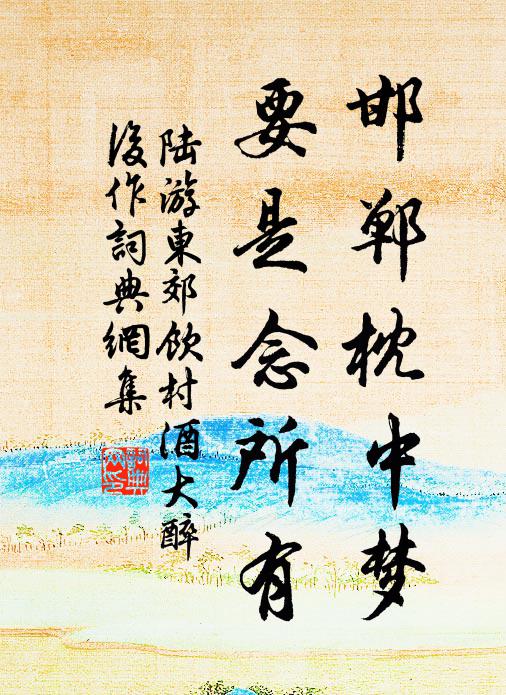 邯郸枕中梦
要是念所有
陆游東郊飲村酒大醉
後作詞典網集